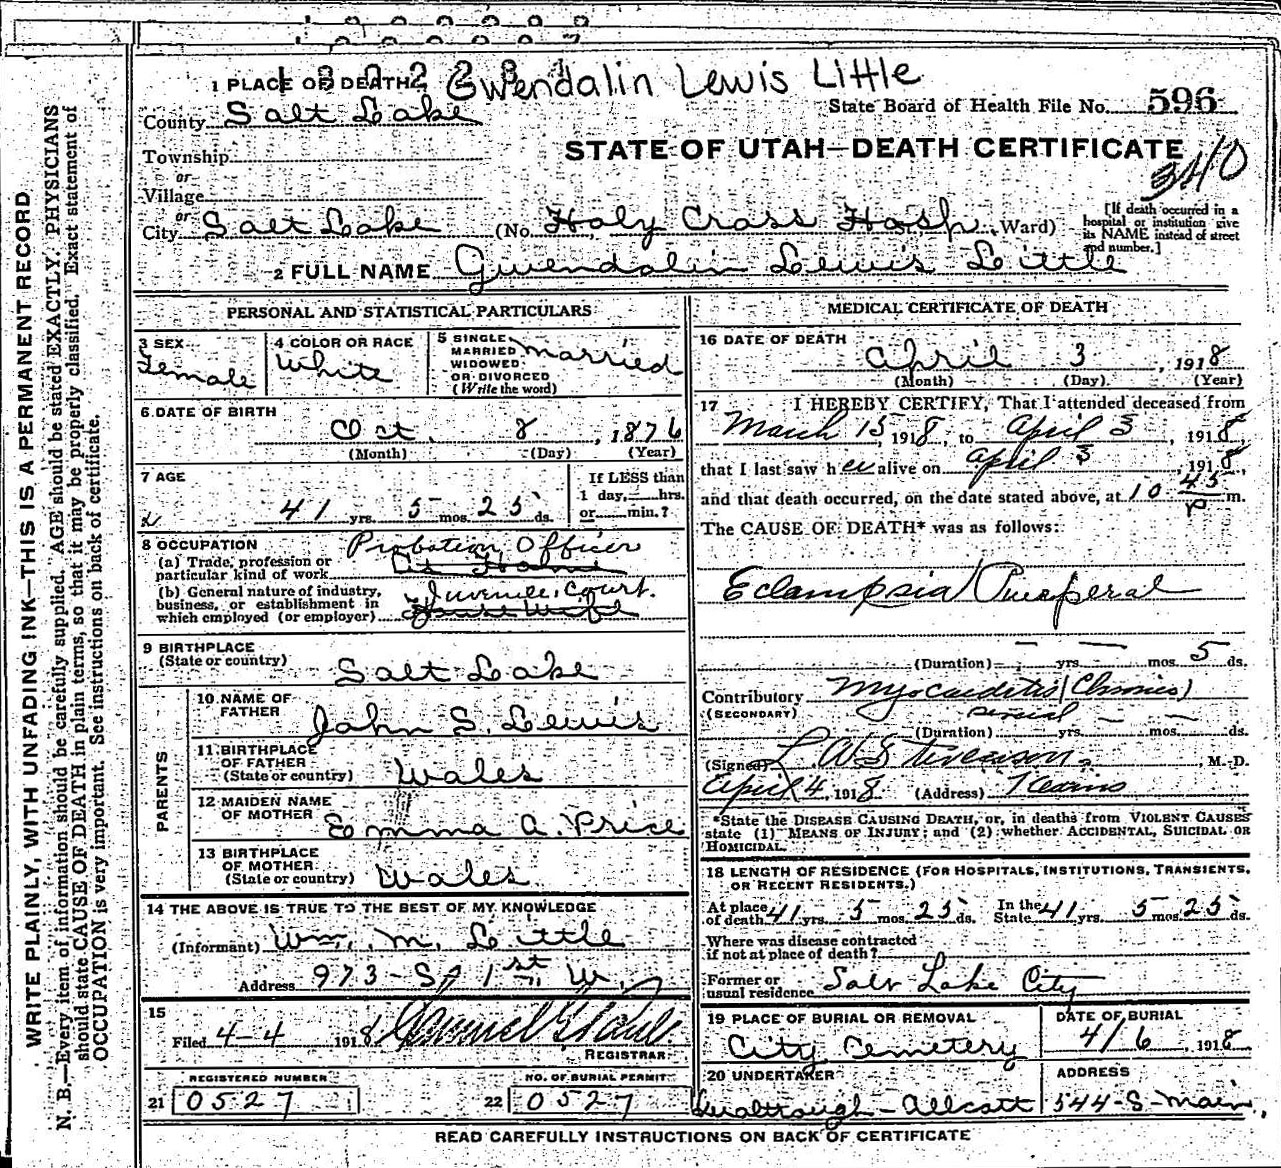 Gwendalin Lewis Little
1 PLACE OF DEATH
County Salt Lake
State Board of Health File No. 596
STATE OF UTAH—DEATH CERTIFICATE
340
Township
or
Village
or
City Salt Lake (No. Holy Cross Hosp. Ward)
[If death occurred in a hospital or institution give its NAME instead of street and number.]
2 FULL NAME Gwendalin Lewis Little
PERSONAL AND STATISTICAL PARTICULARS
3 SEX Female
4 COLOR OR RACE White
5 SINGLE MARRIED WIDOWED OR DIVORCED (Write the word) Married
6 DATE OF BIRTH
Oct. 8, 1876
(Month) (Day) (Year)
7 AGE
41 yrs. 5 mos. 25 ds.
If LESS than 1 day, hrs. or min.?
8 OCCUPATION
(a) Trade, profession or particular kind of work Probation Officer At Home
(b) General nature of industry, business, or establishment in which employed (or employer) Juvenile Court. House Wife
9 BIRTHPLACE
(State or country) Salt Lake
PARENTS
10 NAME OF FATHER John S. Lewis
11 BIRTHPLACE OF FATHER (State or country) Wales
12 MAIDEN NAME OF MOTHER Emma A. Price
13 BIRTHPLACE OF MOTHER (State or country) Wales
14 THE ABOVE IS TRUE TO THE BEST OF MY KNOWLEDGE
(Informant) Wm. M. Little
Address 973-S 1st W.
15
Filed 4-4 1918
REGISTRAR
REGISTERED NUMBER
21 0527
NO. OF BURIAL PERMIT
22 0527
MEDICAL CERTIFICATE OF DEATH
16 DATE OF DEATH
April 3, 1918
(Month) (Day) (Year)
17 I HEREBY CERTIFY, That I attended deceased from
March 15, 1918, to April 3, 1918,
that I last saw her alive on April 3, 1918,
and that death occurred, on the date stated above, at 10 45 P m.
The CAUSE OF DEATH* was as follows:
Eclampsia Pueperal
(Duration) yrs. mos. 5 ds.
Contributory Myocarditis (Chronic)
(SECONDARY)
(Duration) several yrs. mos. ds.
(Signed) Stevenson, M. D.
April 4, 1918 (Address) Kearns
*State the DISEASE CAUSING DEATH, or, in deaths from VIOLENT CAUSES
state (1) MEANS OF INJURY; and (2) whether ACCIDENTAL, SUICIDAL OR
HOMICIDAL.
18 LENGTH OF RESIDENCE (FOR HOSPITALS, INSTITUTIONS, TRANSIENTS,
OR RECENT RESIDENTS.)
At place of death 41 yrs. 5 mos. 25 ds. In the State 41 yrs. 5 mos. 25 ds.
Where was disease contracted
if not at place of death?
Former or
usual residence Salt Lake City
19 PLACE OF BURIAL OR REMOVAL
City Cemetery
DATE OF BURIAL
4/6, 1918
20 UNDERTAKER
ADDRESS
544-S-Main,
READ CAREFULLY INSTRUCTIONS ON BACK OF CERTIFICATE
WRITE PLAINLY, WITH UNFADING INK—THIS IS A PERMANENT RECORD
N. B.—Every item of information should be carefully supplied. AGE should be stated EXACTLY. PHYSICIANS
should state CAUSE OF DEATH in plain terms, so that it may be properly classified. Exact statement of
OCCUPATION is very important. See instructions on back of certificate.